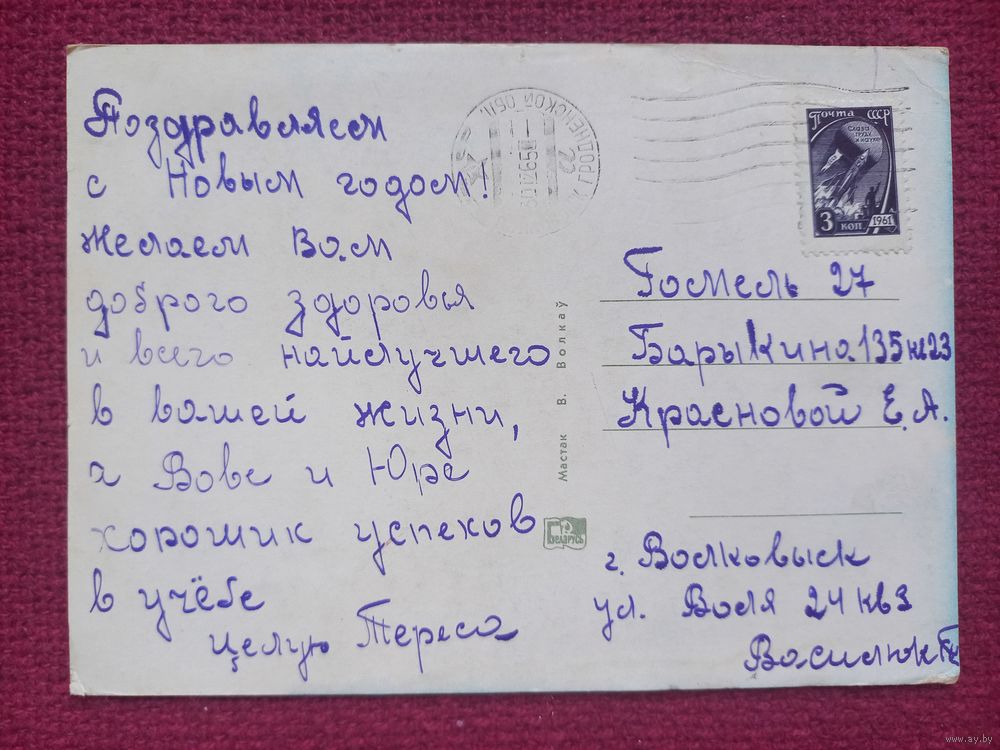 Поздравляем
с Новым годом!
Желаем Вам
доброго здоровья
и всего найлучшего
в вашей жизни,
а Вове и Юре
хороших успехов
в учёбе
целую Тереса
ГРОДНЕНСКОЙ ОБЛ.
Почта СССР
СЛАВА
ТРУДУ
И НАУКЕ
3 КОП. 1961
Мастак В. Волкаў
БЕЛАРУСЬ
Гомель 27
Барыкина 135 кв 23
Красновой Е. А.
г. Волковыск
ул. Воля 24 кв 3
Василюк
www.ay.by